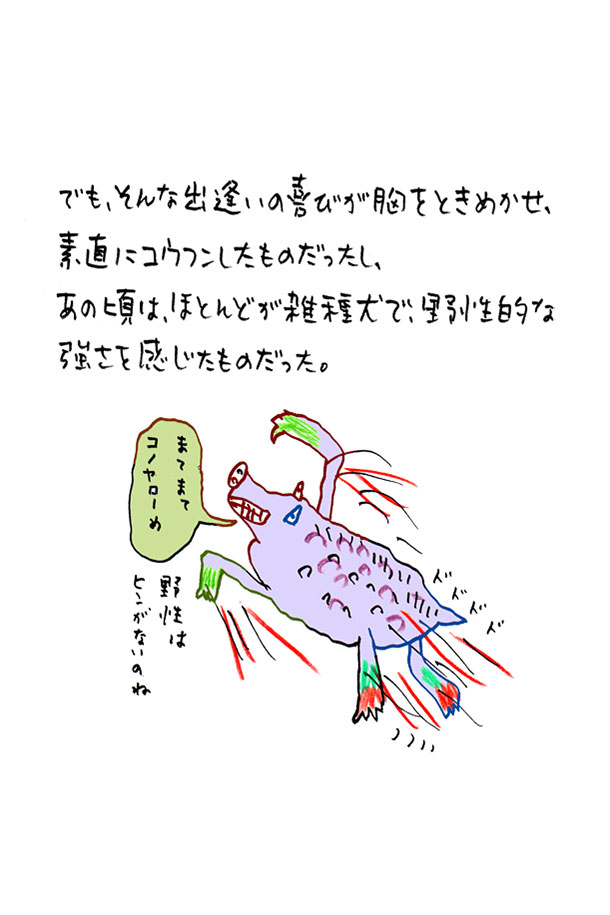 でも、そんな出逢いの喜びが胸をときめかせ、
素直にコウフンしたものだったし、
あの頃は、ほとんどが雑種犬で、野性的な
強さを感じたものだった。
まてまて
コノヤローめ
野性は
とこがないのね
ドドドド